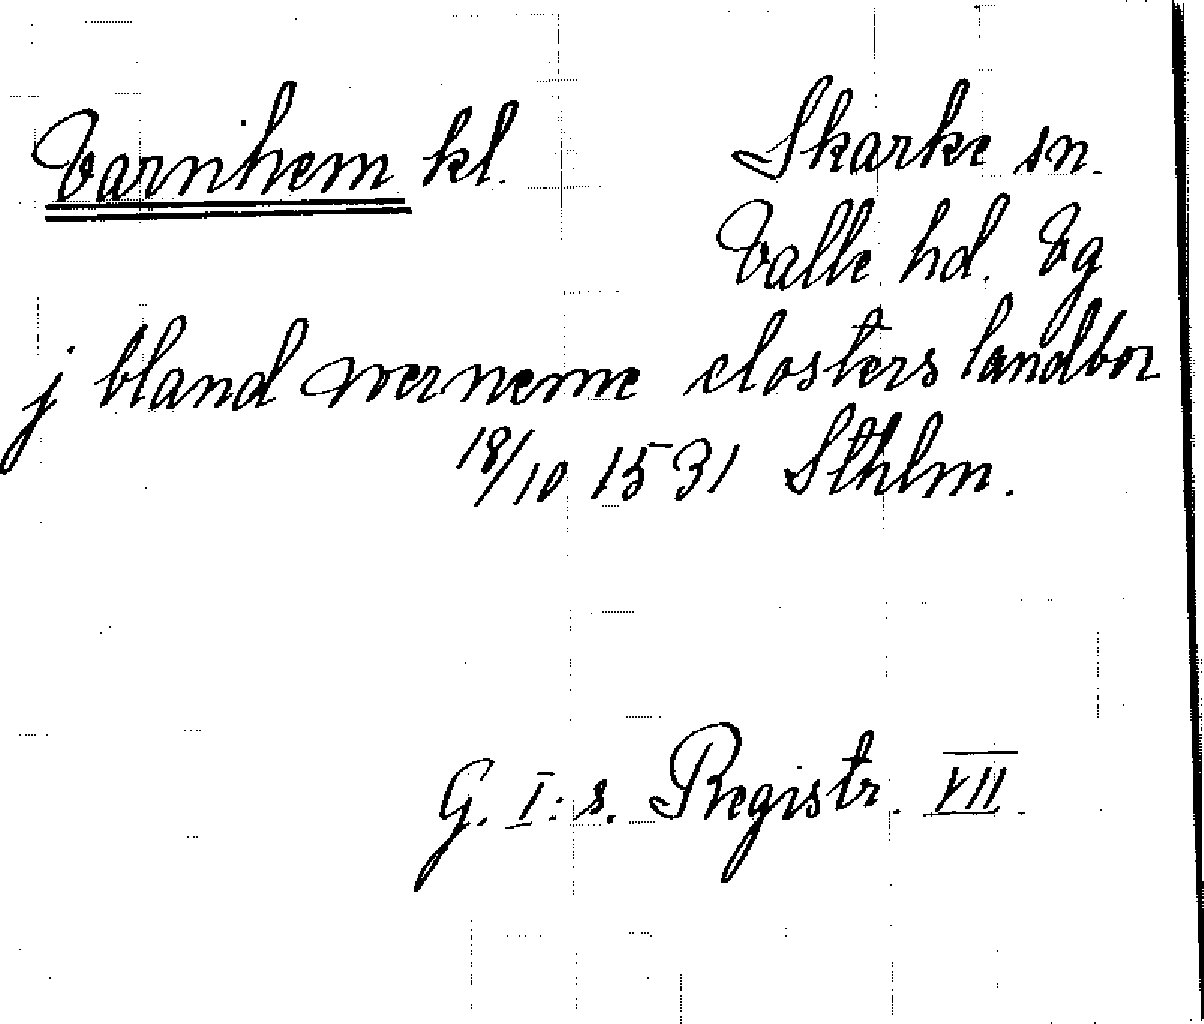 Varnhem kl.
Skarke sn.
Valle hd. Vg
j bland werneme closters landbor
18/10 1531 Sthlm.
G. I:s. Registr. VII.